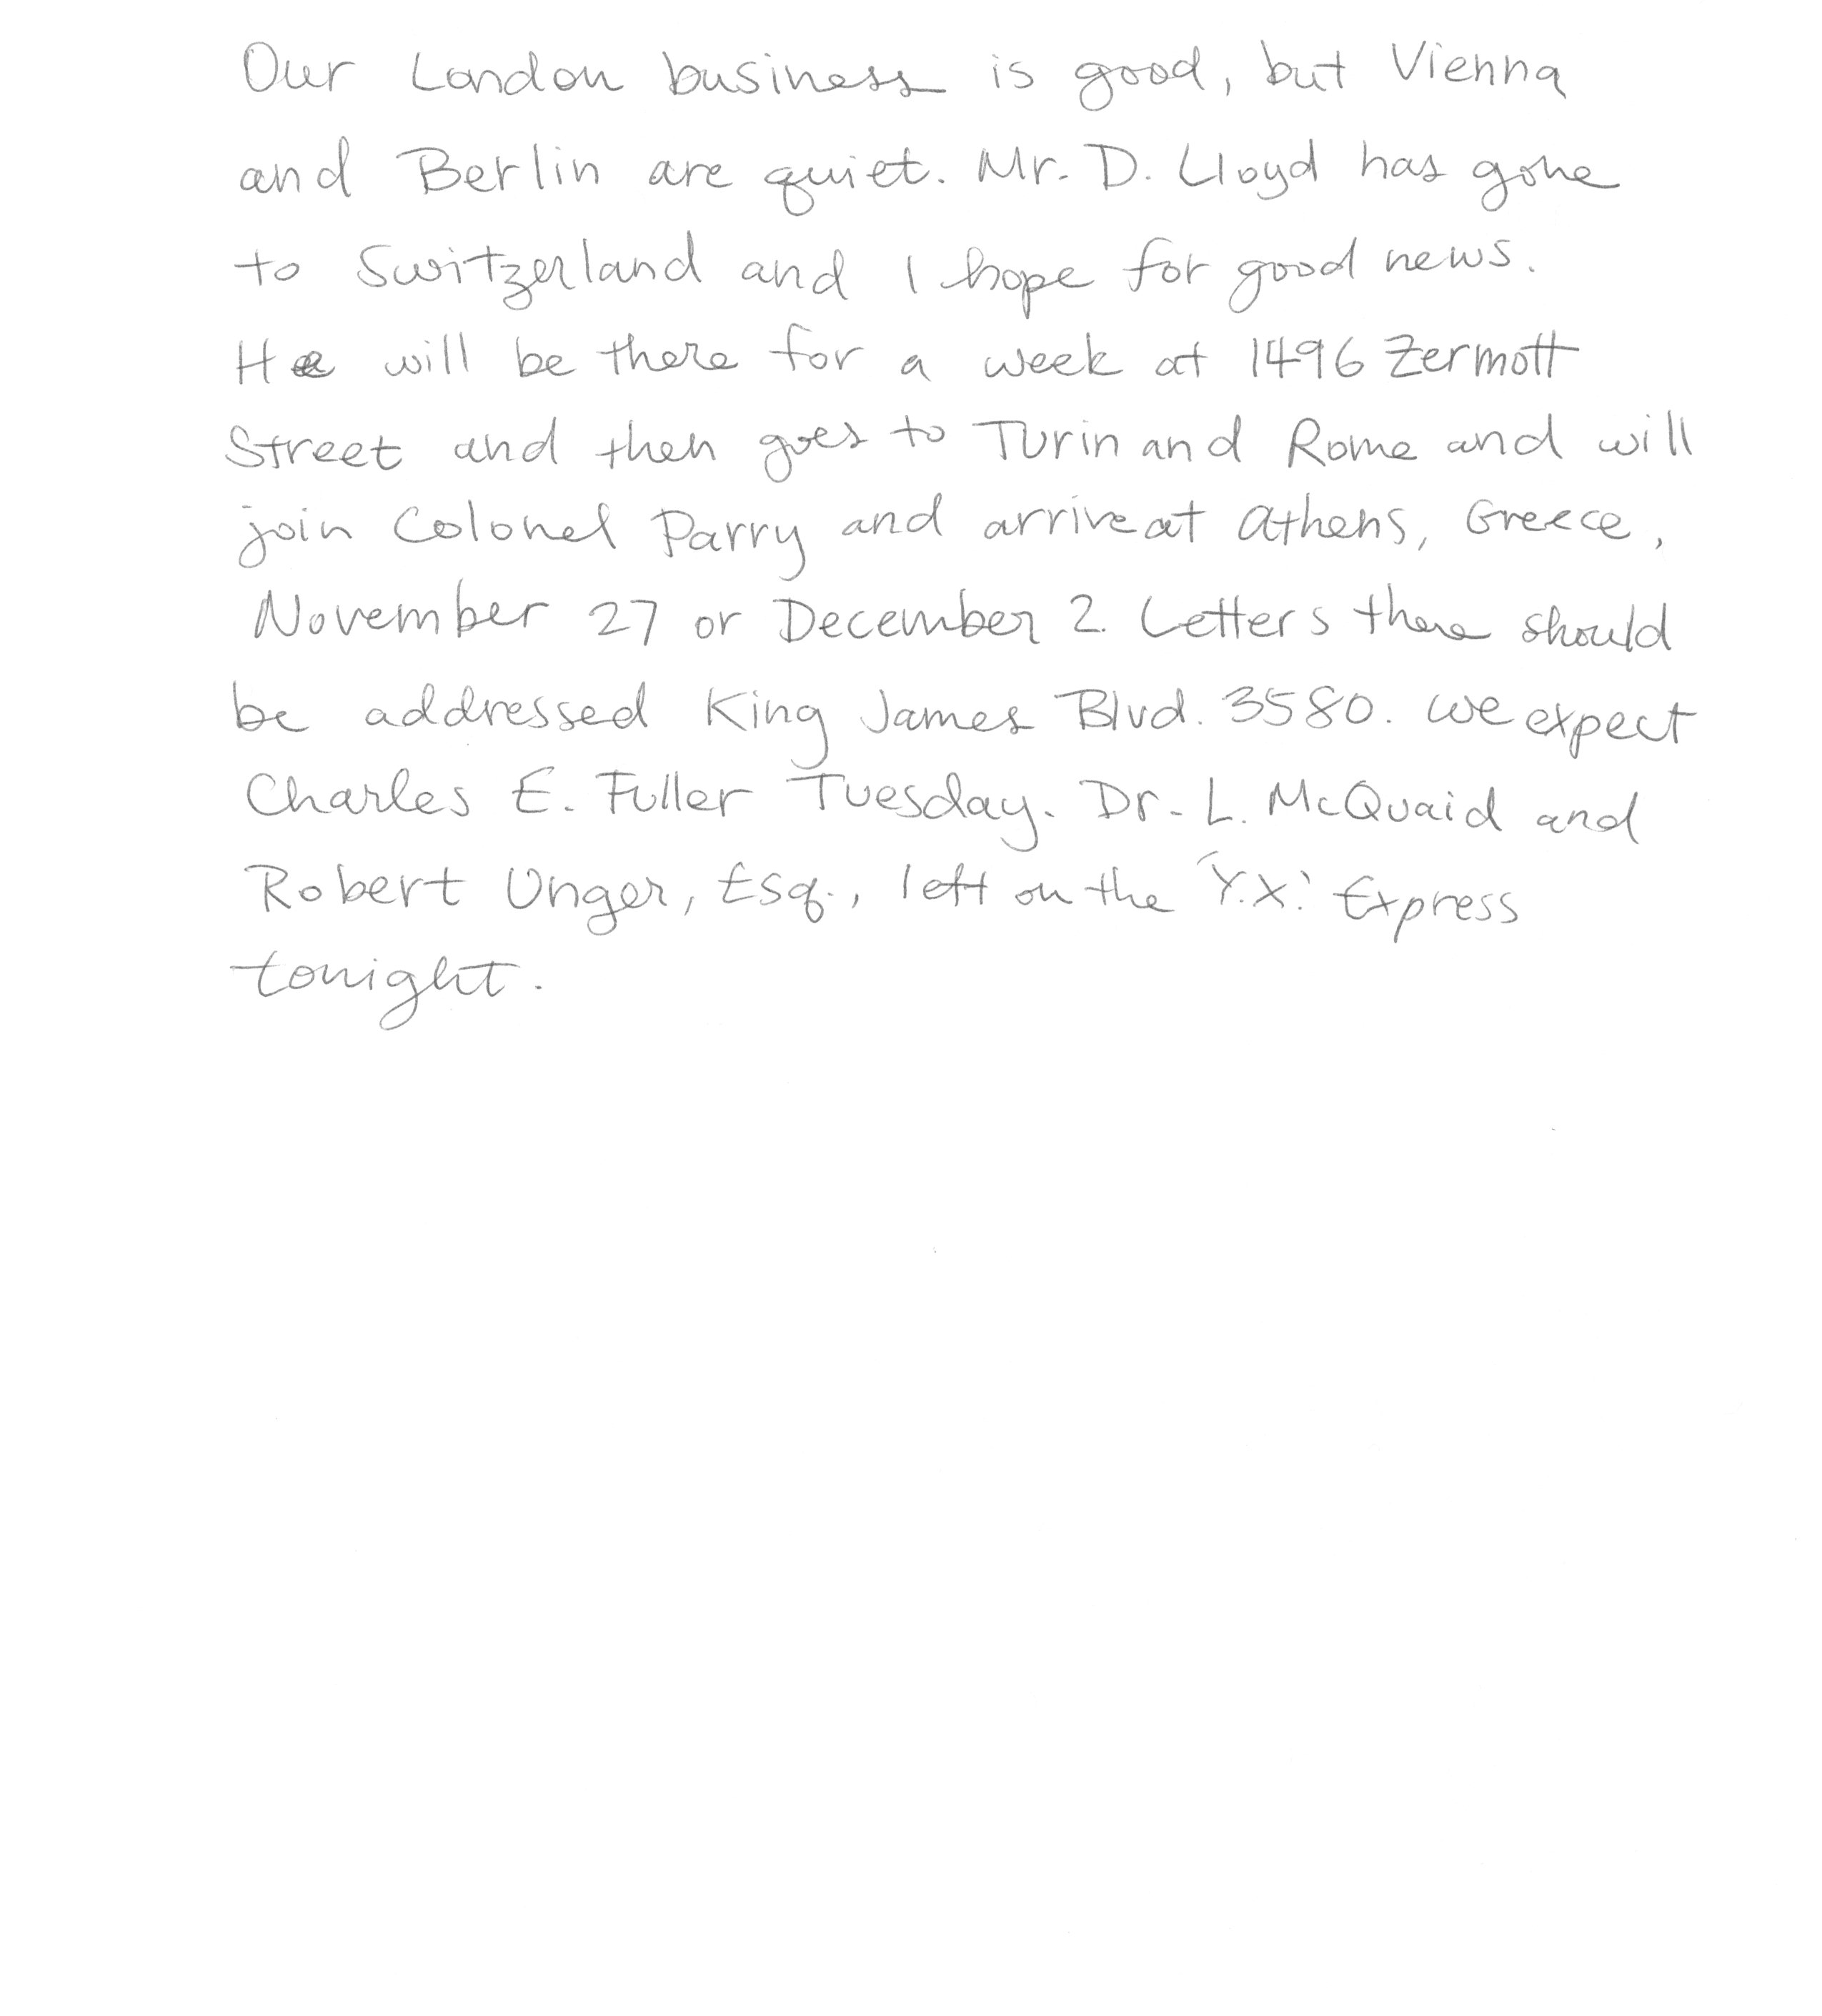 Our London business is good, but Vienna
and Berlin are quiet. Mr. D. Lloyd has gone
to Switzerland and I hope for good news.
He will be there for a week at 1496 Zermott
Street and then goes to Turin and Rome and will
join Colonel Parry and arrive at Athens, Greece,
November 27 or December 2. Letters there should
be addressed King James Blvd. 3580. We expect
Charles E. Fuller Tuesday. Dr. L. McQuaid and
Robert Unger, Esq., left on the 'Y.X.' Express
tonight.